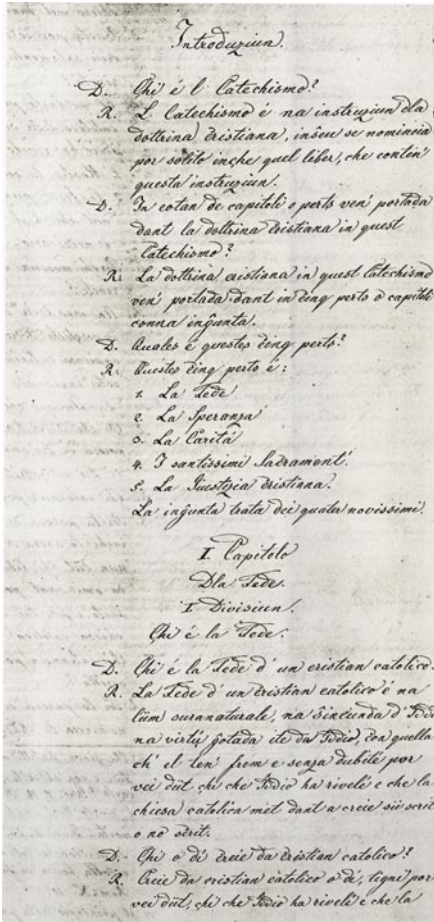 Introduziun.
D. Chi é l Catechismo?
R. L Catechismo é na instruziun dla
dottrina cristiana, insćue se nomineia
por solito inćhe quel liber, che conten'
questa instruziun.
D. In cotan de capitoli o perts ven' portada
dant la dottrina cristiana in quest
Catechismo?
R. La dottrina cristiana in quest Catechismo
ven' portada dant in cinq perts o capitoli
conna ingiunta.
D. Quales é questes cinq perts?
R. Questes cinq perts é:
1. La Fede
2. La Speranza
3. La Carité
4. I santissimi Sacramenti.
5. La Giustizia cristiana.
La ingiunta trata dei quater novissimi.
I. Capitolo
Dla Fede.
I. Divisiun.
Chi é la Fede.
D. Chi é la Fede d' un cristian catolico.
R. La Fede d' un cristian catolico é na
lüm suranaturale, na d' Iddî
na virtü ite da Iddio, quella
ch' el ten' frem e senza dubité por
vei düt chi che Iddio ha rivelé e che la
chiesa catolica met dant a creie sii scrit
o no scrit.
D. Chi o dí creie da cristian catolico?
R. Creie da cristian catolico o dí, tigní por
vei düt, chi che Iddio ha rivelé e che la